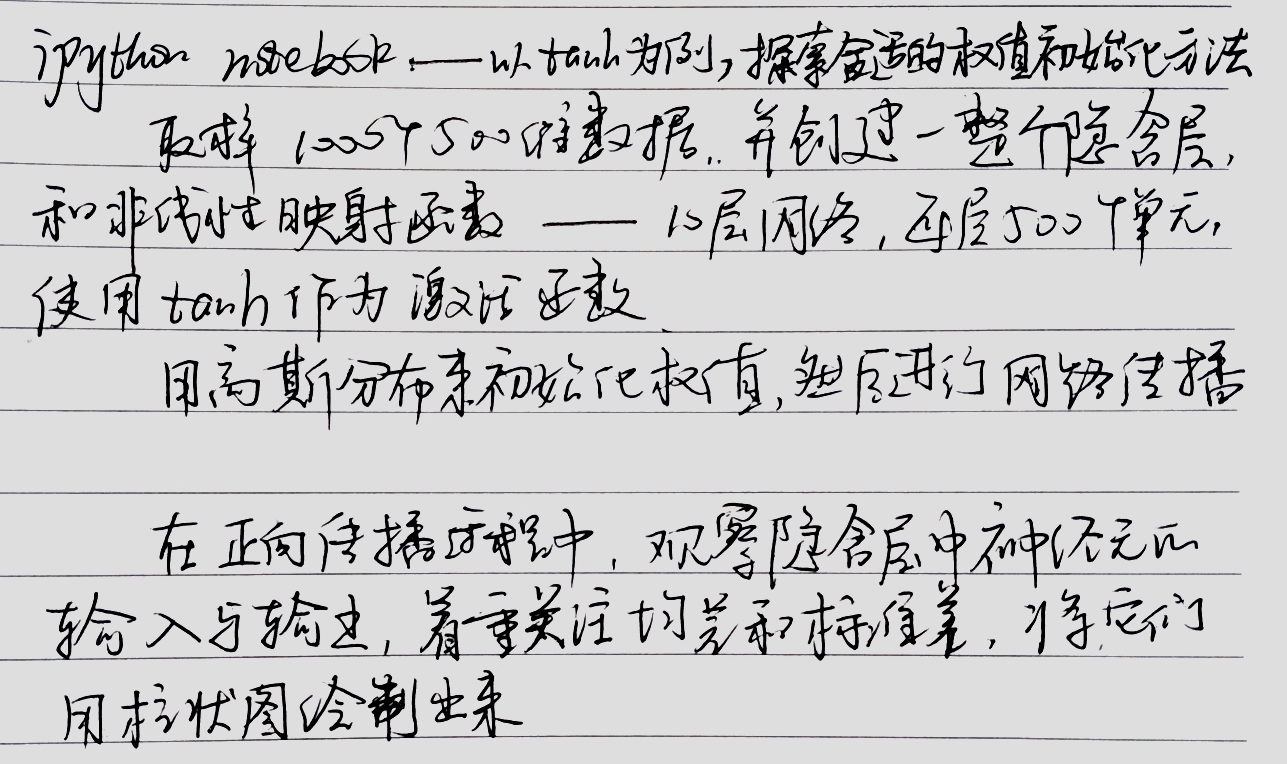 ipython notebook —— 以tanh为例,探索合适的权值初始化方法
取样1000个500维数据,并创建一整个隐含层,
和非线性映射函数 —— 10层网络,每层500个单元,
使用tanh作为激活函数
用高斯分布来初始化权值,然后进行网络传播
在正向传播过程中,观察隐含层中神经元的
输入与输出,着重关注均差和标准差,将它们
用柱状图绘制出来